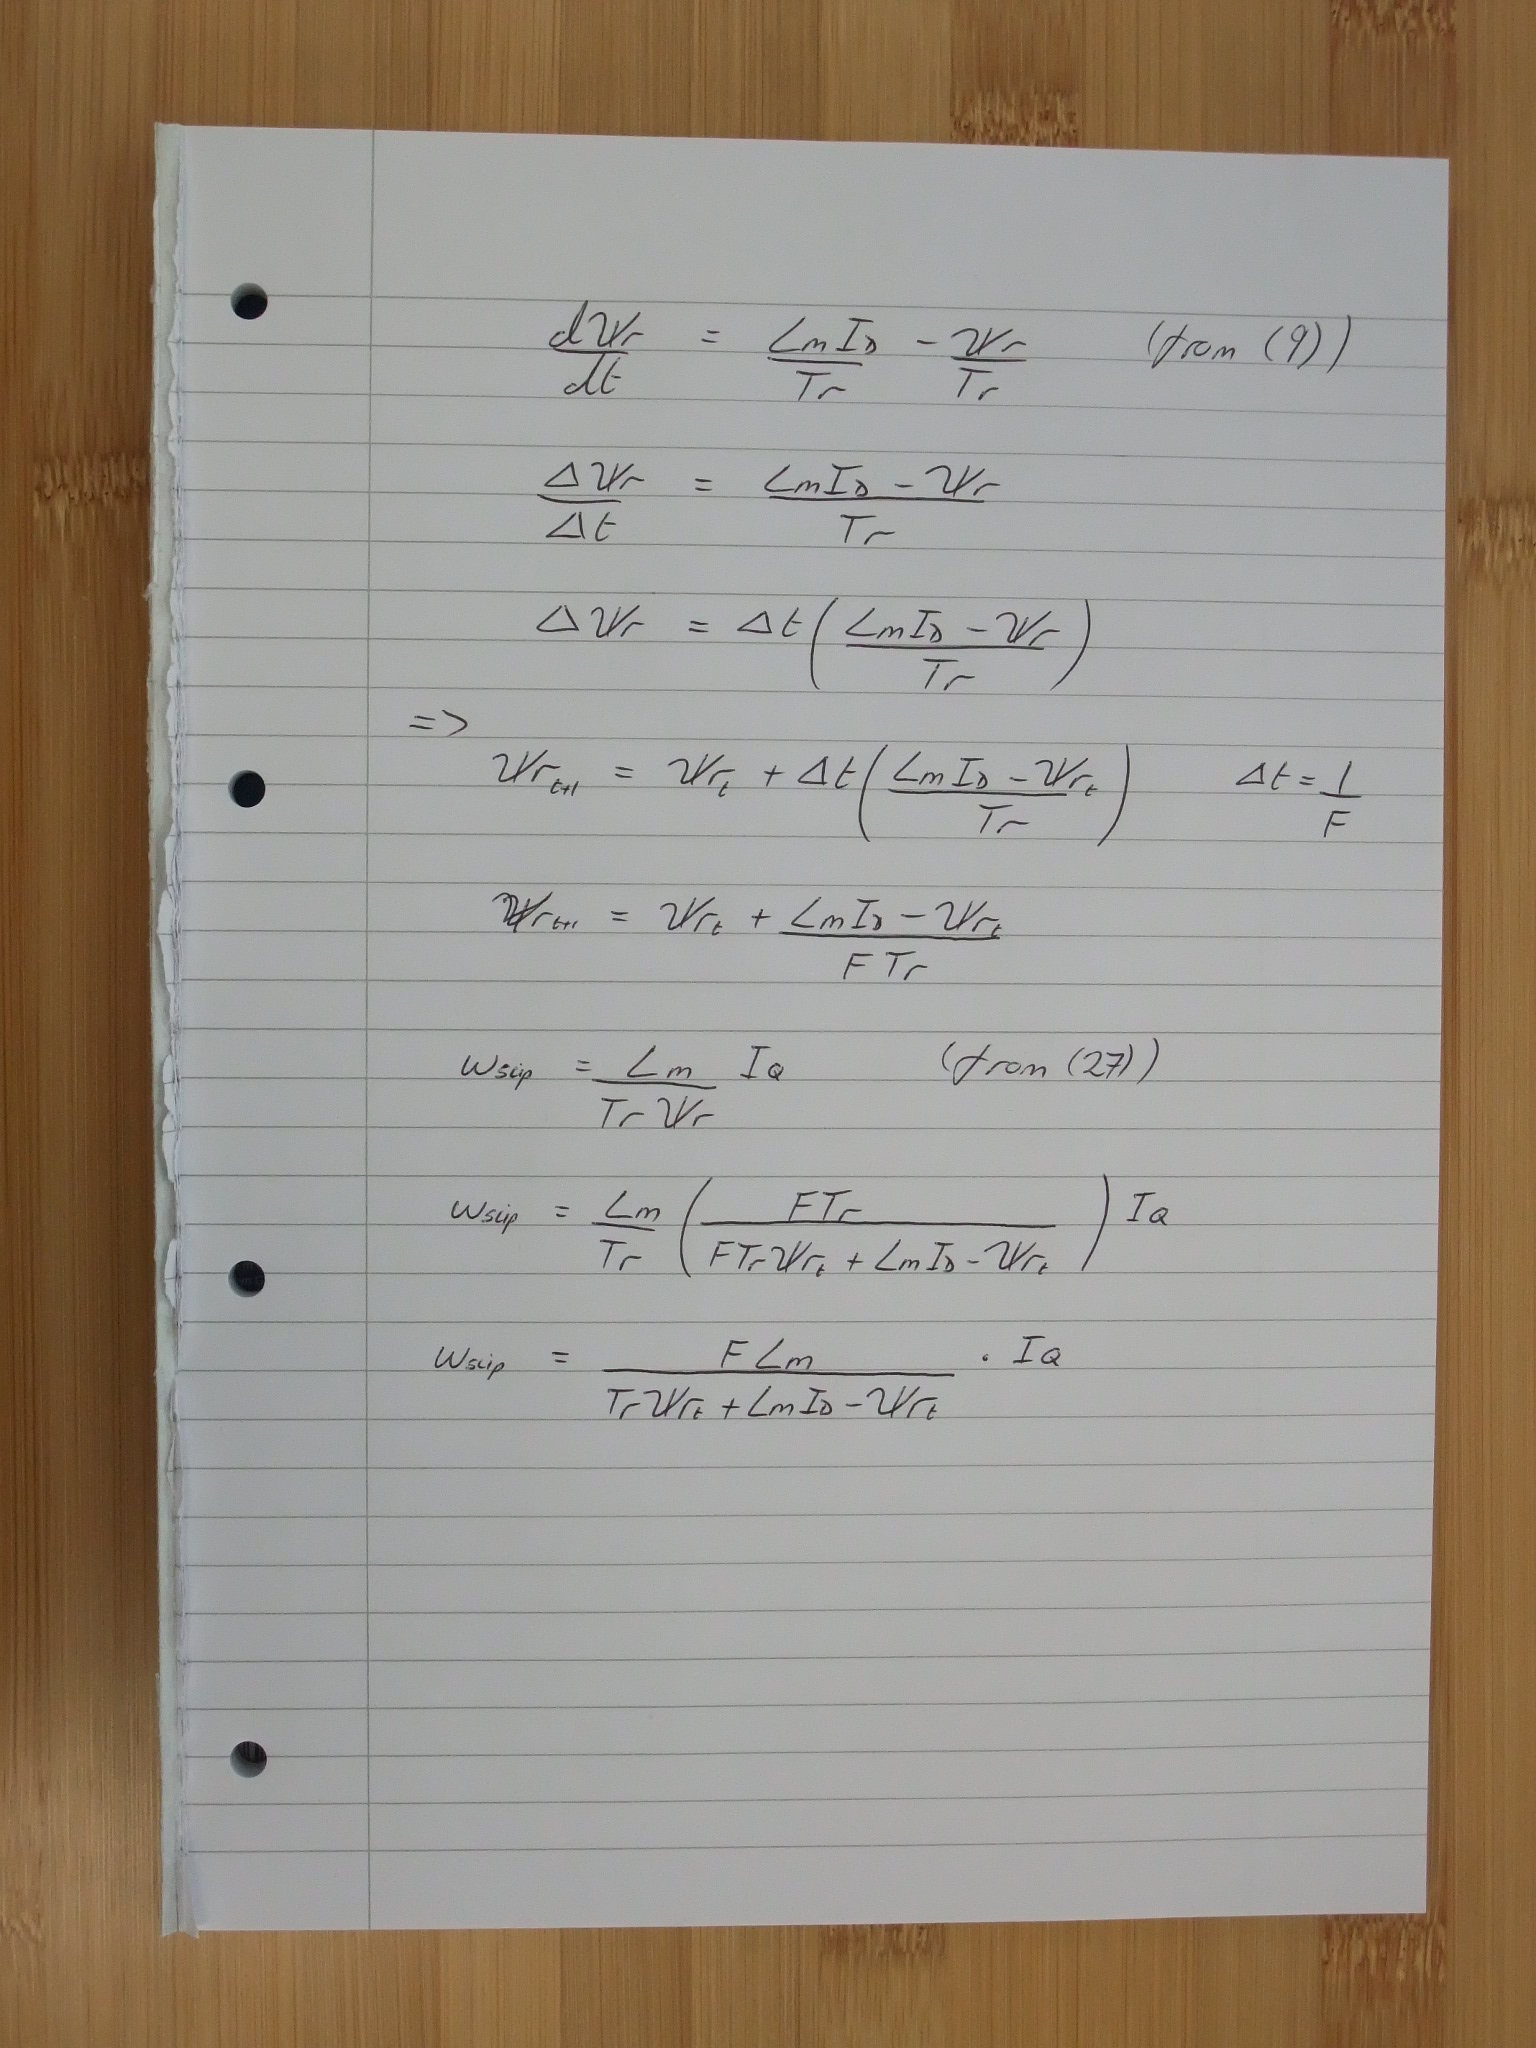 dΨr/dt = LmID/Tr - Ψr/Tr (from (9))
ΔΨr/Δt = (LmID - Ψr)/Tr
ΔΨr = Δt((LmID - Ψr)/Tr)
=>
Ψr_t+1 = Ψr_t + Δt((LmID - Ψr_t)/Tr) Δt = 1/F
Ψr_t+1 = Ψr_t + (LmID - Ψr_t)/(F Tr)
wslip = Lm/(Tr Ψr) IQ (from (27))
wslip = Lm/Tr (FTr/(FTrΨr_t + LmID - Ψr_t)) IQ
wslip = F Lm/(TrΨr_t + LmID - Ψr_t) . IQ